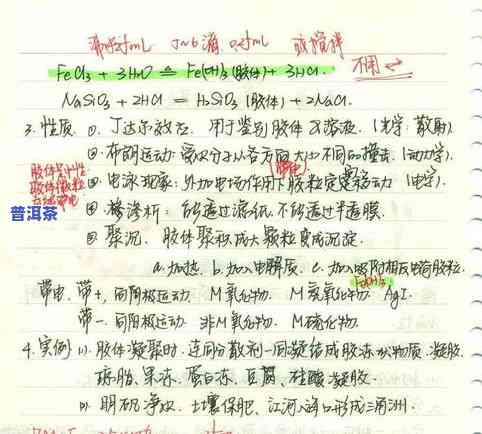 沸水25mL 5~6滴 0.5mL 或搅拌
FeCl₃ + 3H₂O ≜ Fe(OH)₃(胶体) + 3HCl. 不用 ⇌
Na₂SiO₃ + 2HCl = H₂SiO₃(胶体) + 2NaCl.
3. 性质 ①. 丁达尔效应. 用于鉴别胶体及溶液. (光学. 散射).
②. 布朗运动: 受水分子从各方面大小不同的撞击. (动力学).
胶体是中性
胶体微粒
带电
(带电)
③. 电泳现象: 外加电场作用下胶粒定向移动 (电学).
④. 渗析: 能透过滤纸不能透过半透膜.
⑤. 聚沉. 胶体聚积成大颗粒变成沉淀.
a. 加热. b. 加入电解质. c. 加入吸附相反电荷胶粒.
Fe(OH)₃
带电. 带+. 向阴极运动. M氧化物. M氢氧化物. AgI.
带一. 向阳极运动. 非M氧化物. M硫化物.
4. 实例 (1). 胶体凝聚时. 连同分散剂一同凝结成胶冻状物质. 凝胶.
琼脂. 果冻. 蛋白冻. 豆腐. 硅酸凝胶.
(2). 明矾净水. 土壤保肥. 江河入海口形成三角洲.
普洱茶